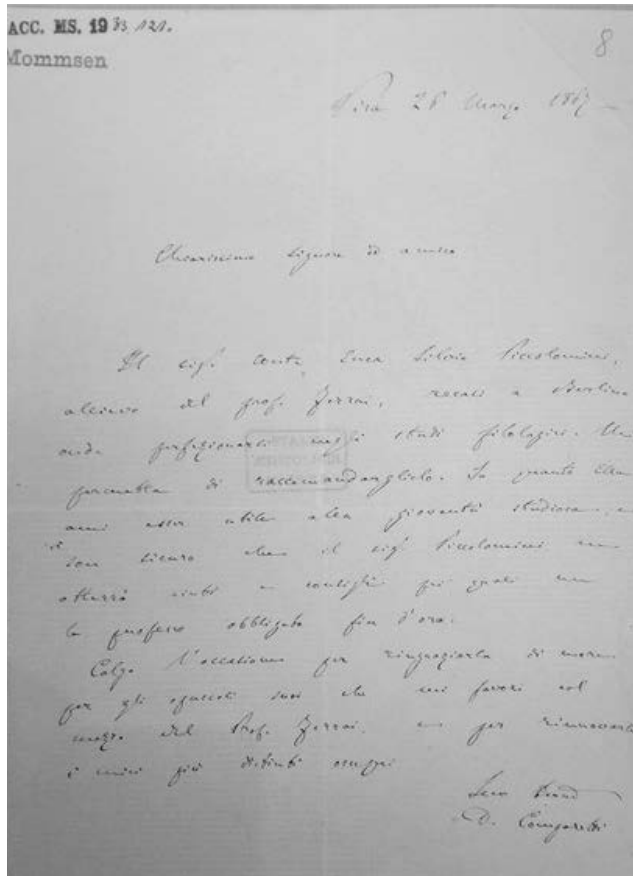 ACC. MS. 1983.121.
Mommsen
8
Pisa 28 Marzo 1867
Chiarissimo signore ed amico
Il sigr conte Enea Silvio Piccolomini,
allievo del prof. Ferrai, recasi a Berlino
onde perfezionarsi negli studi filologici. Mi
permetta di raccomandarglielo. So quanto Ella
ami esser utile alla gioventù studiosa, e
son sicuro che il sigr Piccolomini ne
otterrà aiuti e consigli pei quali me
le professo obbligato fin d'ora.
Colgo l'occasione per ringraziarla di nuovo
per gli opuscoli suoi che mi favorì col
mezzo del Prof. Ferrai, e per rinnovarle
i miei più distinti ossequi
Suo
D. Comparetti